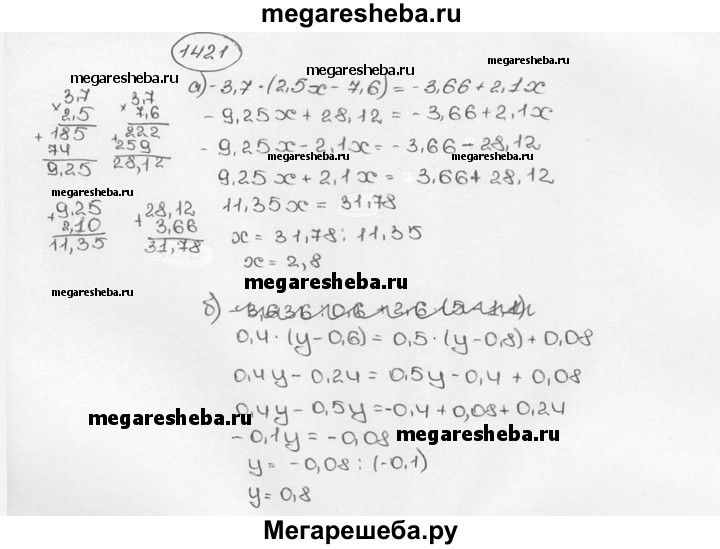 megaresheba.ru
1421
megaresheba.ru
megaresheba.ru
а) -3,7·(2,5x - 7,6) = -3,66 + 2,1x
- 9,25x + 28,12 = -3,66 + 2,1x
- 9,25x - 2,1x = -3,66 - 28,12
9,25x + 2,1x = 3,66 + 28,12
11,35x = 31,78
x = 31,78 : 11,35
x = 2,8
× 3,7
2,5
+ 185
74
9,25
× 3,7
7,6
+ 222
259
28,12
megaresheba.ru
megaresheba.ru
+ 9,25
2,10
11,35
+ 28,12
3,66
31,78
megaresheba.ru
megaresheba.ru
б)
0,4·(y - 0,6) = 0,5·(y - 0,8) + 0,08
0,4y - 0,24 = 0,5y - 0,4 + 0,08
0,4y - 0,5y = -0,4 + 0,08 + 0,24
- 0,1y = -0,08
y = -0,08 : (-0,1)
y = 0,8
megaresheba.ru
megaresheba.ru
Мегарешеба.ру